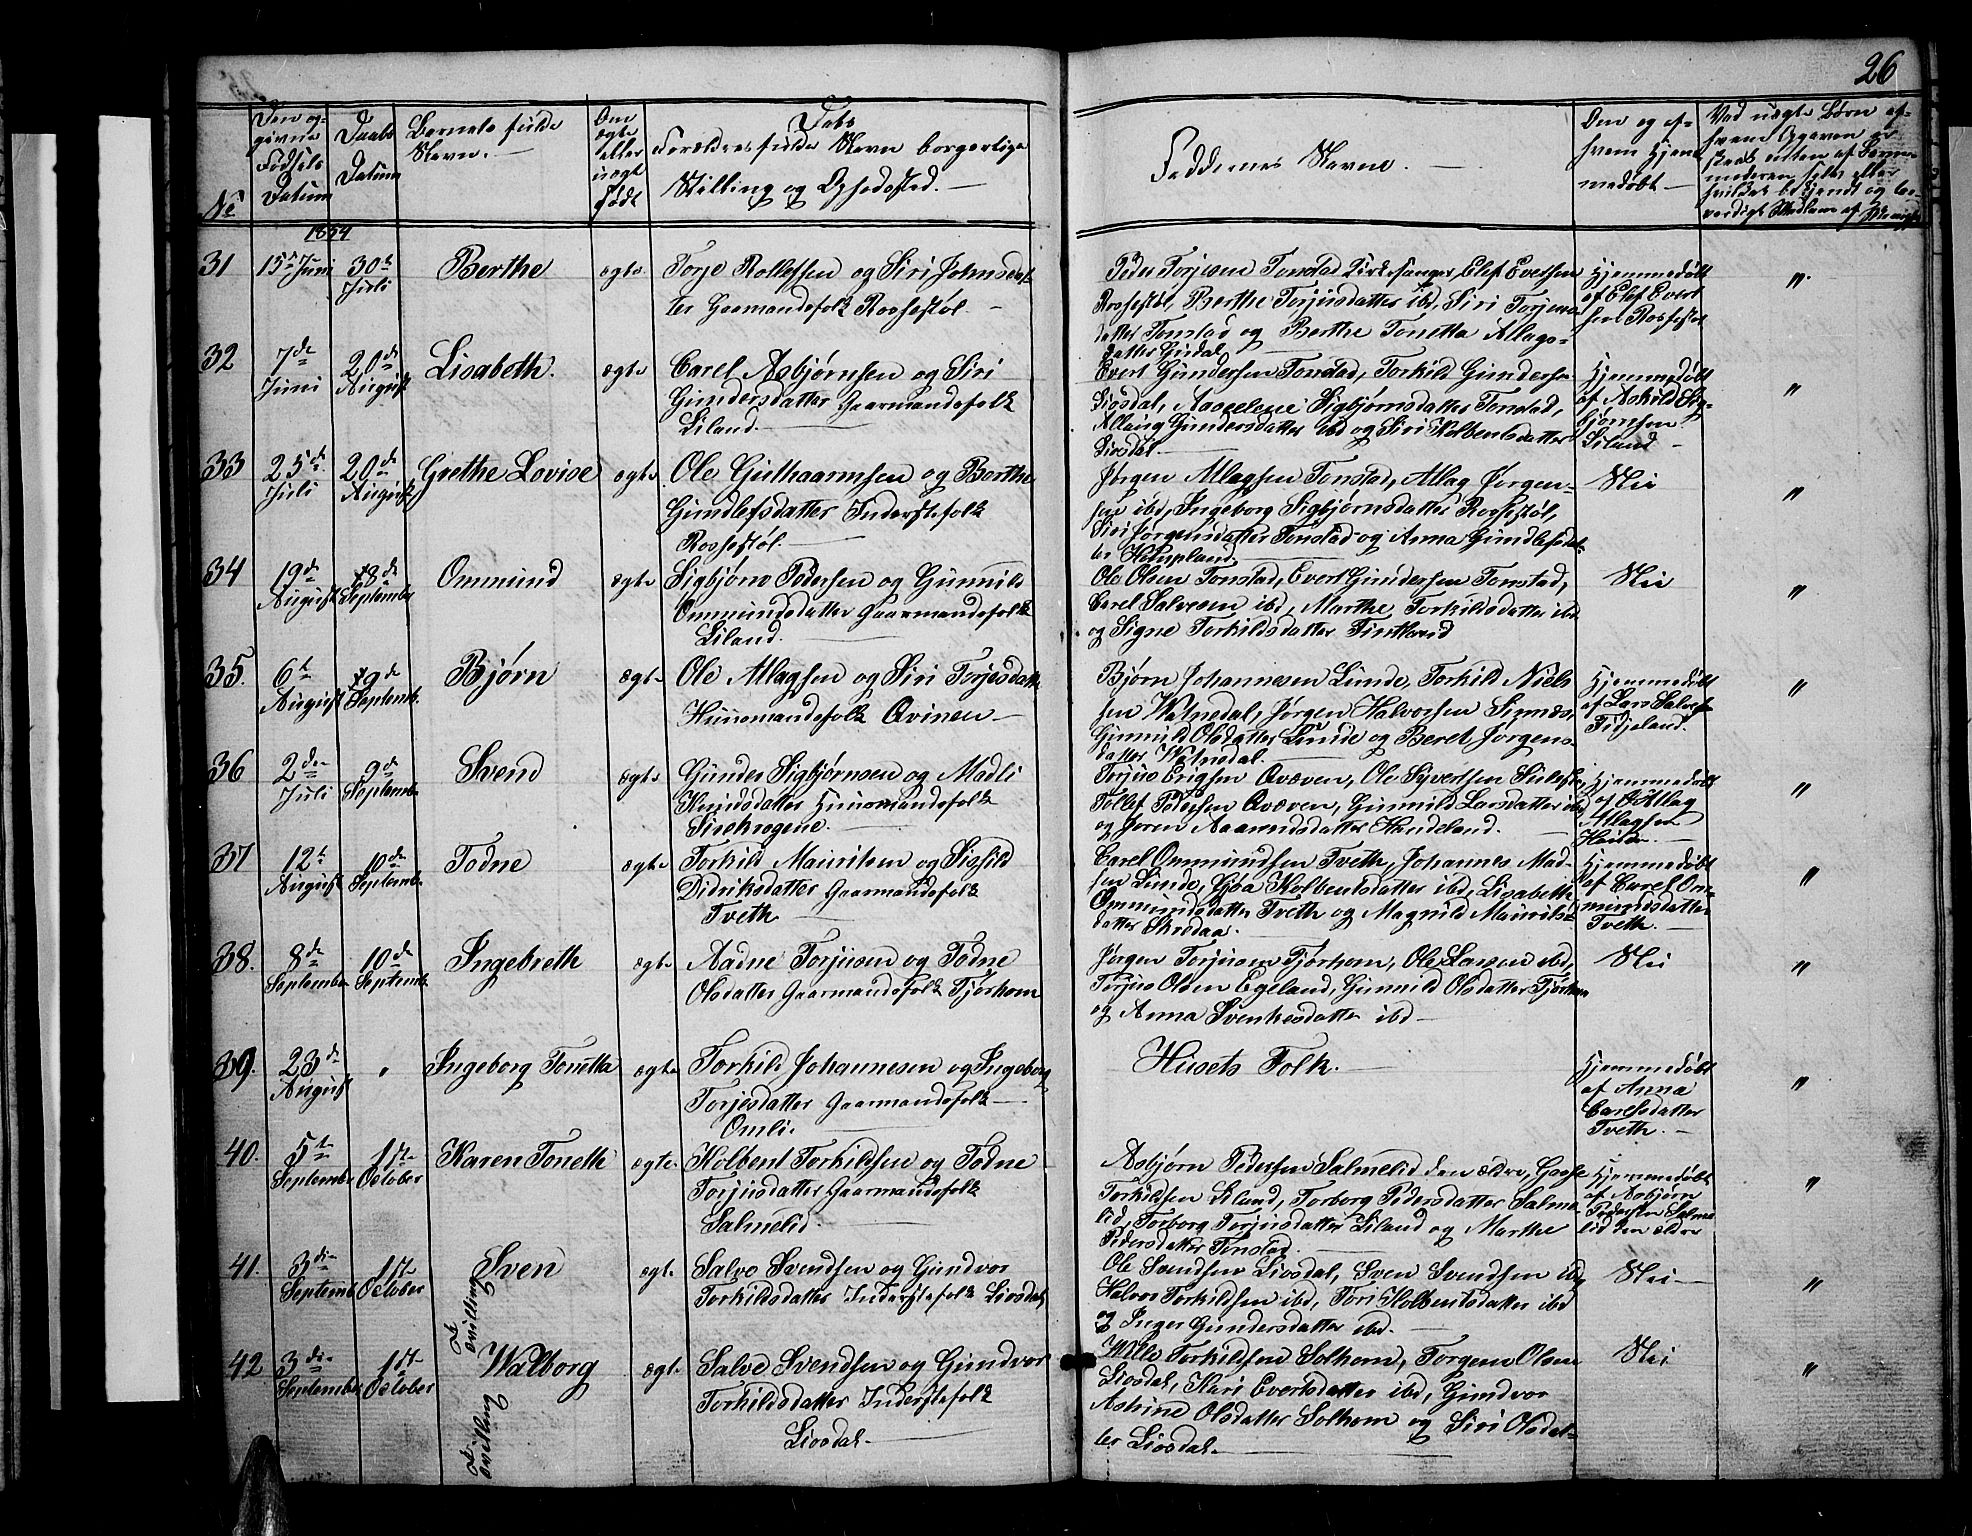 26
No
Den op-
givne
Fødsels
Datum
Daabs
Datum
Barnets fulde
Navn.
Om
ægte
eller
uægte
født
Dets
Forældres fulde Navn borgerlige
Stilling og Opholdsted.
Faddernes Navne.
Om og af
hvem Hjem-
medøbt
Ved uægte Børn af
hvem Opgaven er
1854
31 15de Juni 30te Juli Berthe ægte
Torje Rollefsen og Siri Johnsdat-
ter Gaarmandsfolk Rosseføl.
Peder Torjesen Tonstad Kirkesanger, Elef Evertsen
Rossestøl, Berthe Torjusdatter ibd, Siri Torjus-
datter Tonstad og Berthe Tonetta Atlags-
datter Gusdal
Hjemmedøbt
af Elef Evert
sen Rossestøl
"
32 7de Juni 20de August Lisabeth. ægte
Carel Asbjørnsen og Siri
Gundersdatter Gaarmandsfolk
Liland.
Evert Gundersen Tonstad, Torkild Gundersen
Liosdal, Aaselene Sigbjørnsdatter Tonstad,
Allaug Gundersdatter ibd og Siri Kolbentsdatter
Liosdal
Hjemmedøbt
af Askild Sig-
bjørnsen
Liland
"
33 25de Juli 20de August Grethe Lovise ægte
Ole Guthaarmsen og Berthe
Gundlefsdatter Inderstefolk
Rossestøl.
Jørgen Atlagsen Tonstad, Atlag Jørgen-
sen ibd, Ingeborg Sigbjørnsdatter Rossestøl,
Siri Jørgensdatter Tonstad og Anna Gundlefsdat-
ter
Nei
"
34 19de August 8de September Ommund ægte
Sigbjørn Pedersen og Gunnild
Ommundsdatter Gaarmandsfolk
Liland.
Ole Olsen Tonstad, Evert Gundersen Tonstad,
Carel Salvesen ibd, Marthe Torkildsdatter ibd
og Signe Torkildsdatter Fintland
Nei
"
35. 6te August 9de Septemb. Bjørn ægte
Ole Atlagsen og Siri Torjesdatter
Huusmandsfolk Qvinen
Bjørn Johannesen Lunde, Torkild Niels
sen Watnedal, Jørgen Halvorsen Sinnæs,
Gunnild Olsdatter Lunde og Beret Jørgens-
datter Watnedal.
Hjemmedøbt
af Lars Salves
Fidjeland.
"
36 2den Juli 9de Septemb Svend ægte
Gunder Sigbjørnsen og Madli
Knudsdatter Huusmandsfolk
Sirekrogene.
Torjus Erigsen Qvæven, Ole Syvertsen
Tollef Pedersen Qvæven, Gunnild Larsdatter ibd
og Joren Aamundsdatter Haudeland.
Hjemmedøbt
af Atlag
Atlagsen
"
37 12te August 10de Septemb. Todne ægte
Torkild Mauritsen og Sigfild
Didriksdatter Gaarmandsfolk
Tveth
Carel Ommundsen Tveth, Johannes Mad-
sen Lunde, Gjøa Kolbentsdatter ibd, Lisabeth
Ommundsdatter Tveth og Magnild Maurits-
datter Skredaa.
Hjemmedøbt
af Carel Om-
mundsdatter
Tveth.
"
38. 8de September 10de Septemb. Ingebreth ægte
Aadne Torjusen og Todne
Olsdatter Gaarmandsfolk Tjørhom
Jørgen Torjusen Tjørhom, Ole Larsen ibd,
Torjus Olsen Egeland, Gunnild Olsdatter Tjørhom
og Anna Svenkesdatter ibd
Nei
"
39. 23de August " Ingeborg Tonetta ægte
Torkild Johannesen og Ingeborg
Torjesdatter Gaarmandsfolk
Omli.
Husets Folk.
Hjemmedøbt
af Anna
Carelsdatter
Tveth.
"
40. 5te September 1ste October Karen Tonette ægte.
Kolbent Torkildsen og Todne
Torjusdatter Gaarmandsfolk
Salmelid.
Asbjørn Pedersen Salmelid den ældre, Gaase
Torkildsen Liland, Torborg Pedersdatter Salme
lid, Torborg Torjusdatter Liland og Marthe
Pedersdatter Tonstad.
Hjemmedøbt
af Asbjørn
Pedersen Salme
lid den ældre
"
41. 3die Septemb 1ste October Sven Tvilling ægte
Salve Svendsen og Gundvor
Torkildsdatter Inderstefolk Liosdal,
Ole Svendsen Liosdal, Sven Svendsen ibd
Halvor Torkildsen ibd, Tori Kolbentsdatter ibd
og Inger Gundersdatter ibd.
Nei
"
42 3die September 1ste October Walborg Tvilling ægte
Salve Svendsen og Gundvor
Torkildsdatter Inderstefolk
Liosdal
Torkildsen Solhom, Torgeus Olsen
Liosdal, Kari Evertsdatter ibd, Gundvor
Astrine Olsdatter Solhom og Siri Olsdat-
ter Liosdal.
Nei
"